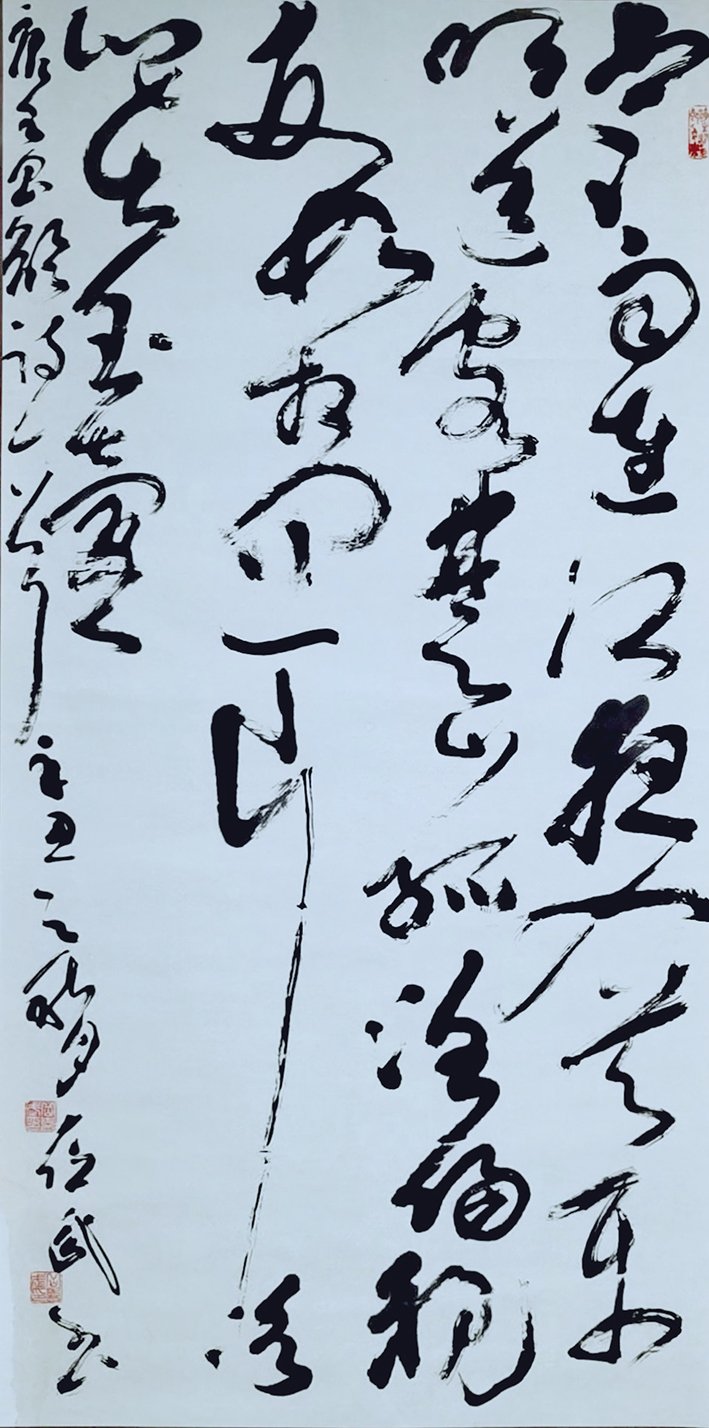 寒雨连江夜入吴平
明送客楚山孤洛阳亲
友如相问一片冰
心在玉壶
唐王昌龄诗一首辛丑之秋月武书